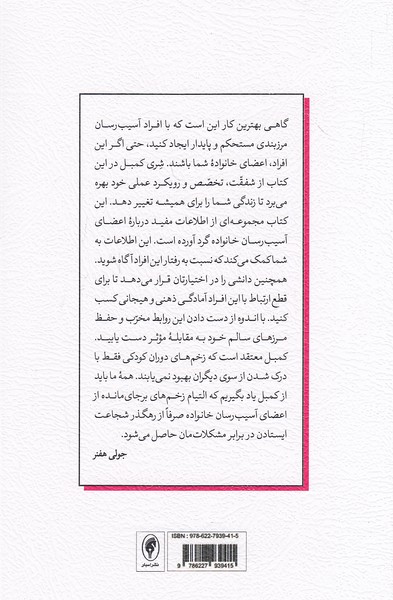 گاهی بهترین کار این است که با افراد آسیب‌رسان
مرزبندی مستحکم و پایدار ایجاد کنید، حتی اگر این
افراد، اعضای خانوادهٔ شما باشند. شِری کمبل در این
کتاب از شفقّت، تخصّص و رویکرد عملی خود بهره
می‌برد تا زندگی شما را برای همیشه تغییر دهد. این
کتاب مجموعه‌ای از اطلاعات مفید دربارهٔ اعضای
آسیب‌رسان خانواده گرد آورده است. این اطلاعات به
شما کمک می‌کند که نسبت به رفتار این افراد آگاه شوید.
همچنین دانشی را در اختیارتان قرار می‌دهد تا برای
قطع ارتباط با این افراد آمادگی ذهنی و هیجانی کسب
کنید. با اندوه از دست دادن این روابط مخرّب و حفظ
مرزهای سالم خود به مقابلهٔ مؤثر دست یابید.
کمبل معتقد است که زخم‌های دوران کودکی فقط با
درک شدن از سوی دیگران بهبود نمی‌یابند. همهٔ ما باید
از کمبل یاد بگیریم که التیام زخم‌های برجای‌مانده از
اعضای آسیب‌رسان خانواده صرفاً از رهگذر شجاعت
ایستادن در برابر مشکلات‌مان حاصل می‌شود.
جولی هفنر
ISBN : 978-622-7939-41-5
9 786227 939415
نشر اسبار